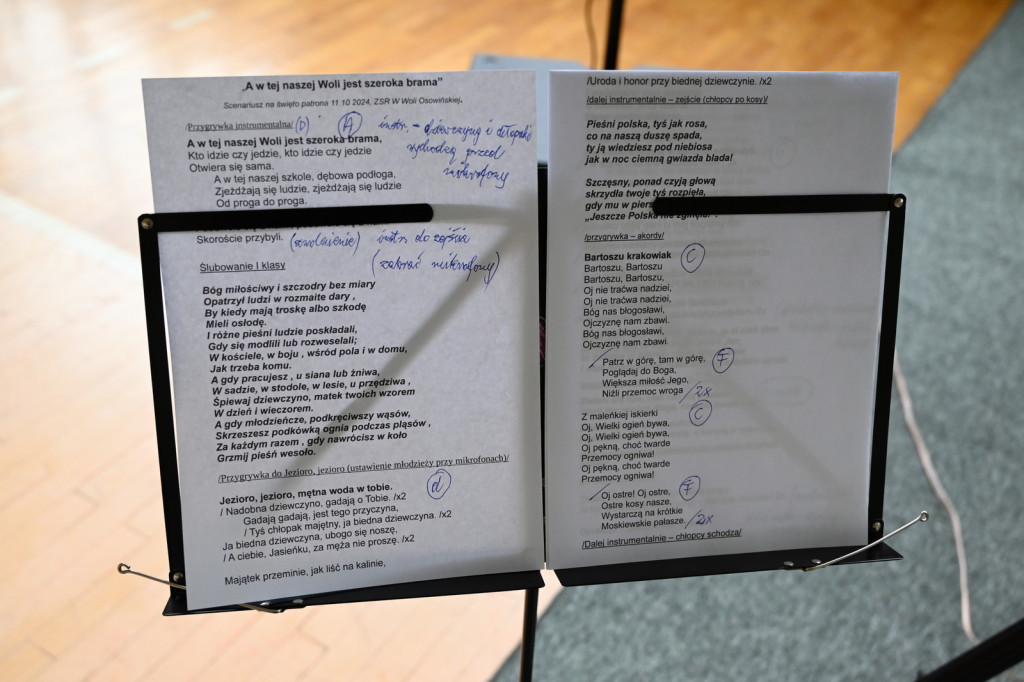 „A w tej naszej Woli jest szeroka brama”
Scenariusz na święto patrona 11.10 2024, ZSR W Woli Osowińskiej.
/Przygrywka instrumentalna/ (D) (A) instr. – dziewczyny i chłopaki
A w tej naszej Woli jest szeroka brama, wychodzą przed
Kto idzie czy jedzie, kto idzie czy jedzie mikrofony
Otwiera się sama.
A w tej naszej szkole, dębowa podłoga,
Zjeżdżają się ludzie, zjeżdżają się ludzie
Od proga do proga.
Skoroście przybyli. (zwolnienie) instr. do zejścia
(zabrać mikrofony)
Ślubowanie I klasy
Bóg miłościwy i szczodry bez miary
Opatrzył ludzi w rozmaite dary ,
By kiedy mają troskę albo szkodę
Mieli osłodę.
I różne pieśni ludzie poskładali,
Gdy się modlili lub rozweselali;
W kościele, w boju , wśród pola i w domu,
Jak trzeba komu.
A gdy pracujesz , u siana lub żniwa,
W sadzie, w stodole, w lesie, u przędziwa ,
Śpiewaj dziewczyno, matek twoich wzorem
W dzień i wieczorem.
A gdy młodzieńcze, podkręciwszy wąsów,
Skrzeszesz podkówką ognia podczas pląsów ,
Za każdym razem , gdy nawrócisz w koło
Grzmij pieśń wesoło.
/Przygrywka do Jezioro, jezioro (ustawienie młodzieży przy mikrofonach)/
Jezioro, jezioro, mętna woda w tobie. (d)
/ Nadobna dziewczyno, gadają o Tobie. /x2
Gadają gadają, jest tego przyczyna,
/ Tyś chłopak majętny, ja biedna dziewczyna. /x2
Ja biedna dziewczyna, ubogo się noszę,
/ A ciebie, Jasieńku, za męża nie proszę. /x2
Majątek przeminie, jak liść na kalinie,
/Uroda i honor przy biednej dziewczynie. /x2
/dalej instrumentalnie – zejście (chłopcy po kosy)/
Pieśni polska, tyś jak rosa,
co na naszą duszę spada,
ty ją wiedziesz pod niebiosa
jak w noc ciemną gwiazda blada!
Szczęsny, ponad czyją głową
skrzydła twoje tyś rozpięła,
gdy mu w piers
„Jeszcze Polska nie zginęła”.
/przygrywka – akordy/
Bartoszu krakowiak (C)
Bartoszu, Bartoszu
Bartoszu, Bartoszu,
Oj nie traćwa nadziei,
Oj nie traćwa nadziei,
Bóg nas błogosławi,
Ojczyznę nam zbawi.
Bóg nas błogosławi,
Ojczyznę nam zbawi.
/ Patrz w górę, tam w górę, (F)
Poglądaj do Boga,
Większa miłość Jego,
Niźli przemoc wroga /2x
Z maleńkiej iskierki (C)
Oj, Wielki ogień bywa,
Oj, Wielki ogień bywa,
Oj pękną, choć twarde
Przemocy ogniwa!
Oj pękną, choć twarde
Przemocy ogniwa!
/ Oj ostre! Oj ostre, (F)
Ostre kosy nasze,
Wystarczą na krótkie
Moskiewskie pałasze. /2x
/Dalej instrumentalnie – chłopcy schodzą/